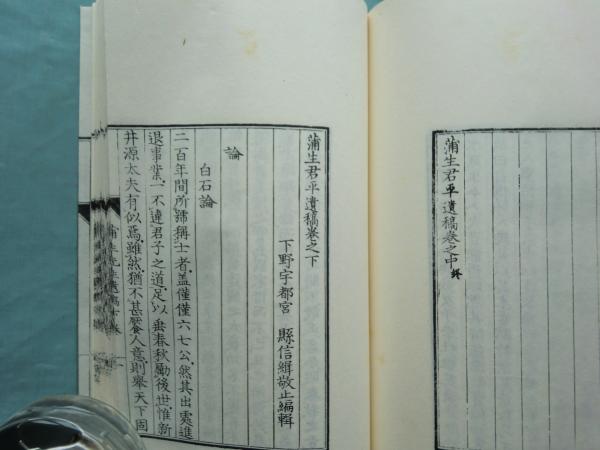 蒲生君平遺稿卷之中終
蒲生君平遺稿卷之下
下野宇都宮 縣信緝敬止編輯
論
白石論
二百年間所號稱士者蓋僅僅六七公然其出處進
退事業一不違君子之道足以垂春秋勵後世惟新
井源太夫有似焉雖然猶不甚厭人意則舉天下固